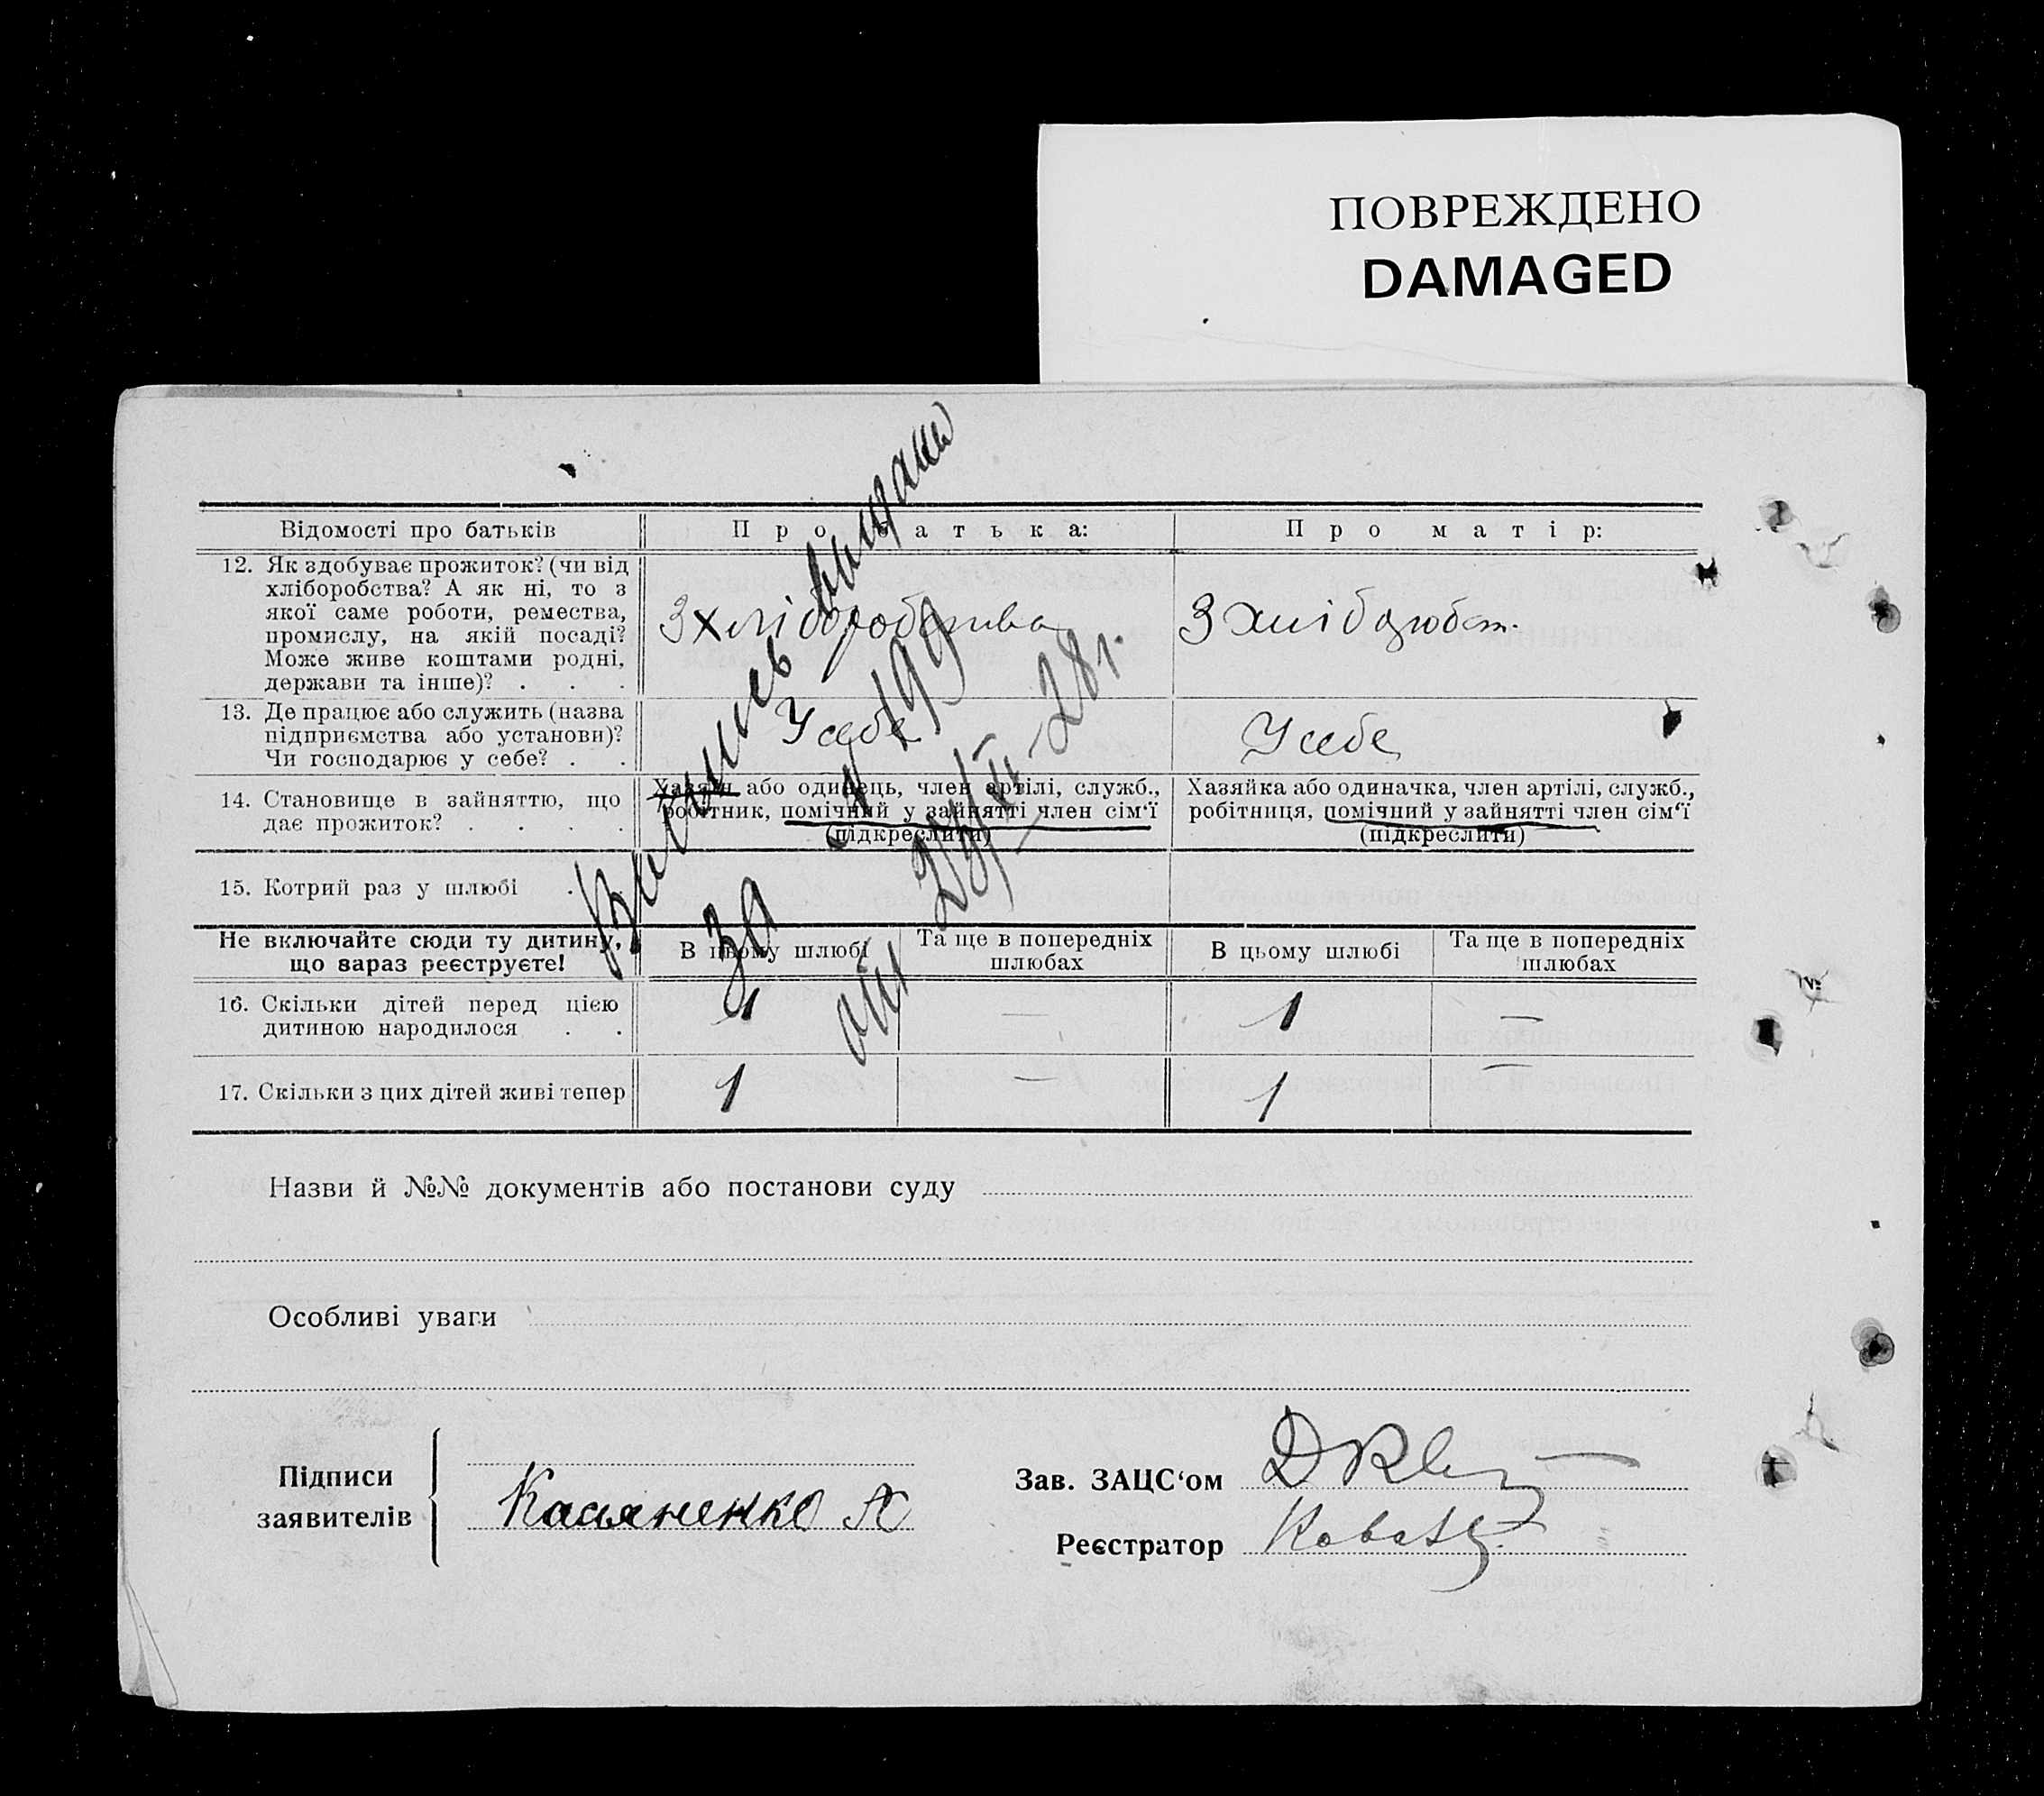 ПОВРЕЖДЕНО
DAMAGED
Відомості про батьків
Про батька:
Про матір:
12. Як здобуває прожиток? (чи від
хліборобства? А як ні, то з
якої саме роботи, ремества,
промислу, на якій посаді?
Може живе коштами родні,
держави та інше)? . . .
З хліборобства
З хлібороб
13. Де працює або служить (назва
підприємства або установи)?
Чи господарює у себе? . .
У себе
У себе
14. Становище в зайняттю, що
дає прожиток? . . . .
Хазяїн або одинець, член артілі, служб.,
робітник, помічний у зайнятті член сім'ї
(підкреслити)
Хазяйка або одиначка, член артілі, служб.,
робітниця, помічний у зайнятті член сім'ї
(підкреслити)
15. Котрий раз у шлюбі .
Не включайте сюди ту дитину,
що зараз реєструєте!
В цьому шлюбі
Та ще в попередніх
шлюбах
В цьому шлюбі
Та ще в попередніх
шлюбах
16. Скільки дітей перед цією
дитиною народилося . .
1 — 1 —
17. Скільки з цих дітей живі тепер
1 — 1 —
за № 199
28 г.
Назви й №№ документів або постанови суду
Особливі уваги
Підписи
заявителів
Касяненко А
Зав. ЗАЦС‘ом
Реєстратор